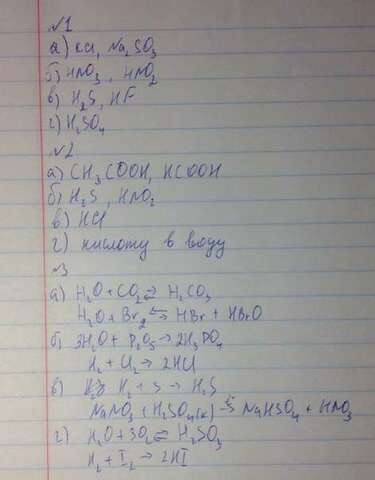 №1
а) KCl, Na₂SO₃
б) HNO₃, HNO₂
в) H₂S, HF
г) H₂SO₄
№2
а) CH₃COOH, HCOOH
б) H₂S, HNO₂
в) HCl
г) кислоту в воду
№3
а) H₂O + CO₂ ⇄ H₂CO₃
H₂O + Br₂ ⇆ HBr + HBrO
б) 3H₂O + P₂O₅ → 2H₃PO₄
H₂ + Cl₂ → 2HCl
в) H₂ + S → H₂S
NaNO₃ + H₂SO₄(к) → NaHSO₄ + HNO₃
г) H₂O + SO₂ ⇄ H₂SO₃
H₂ + I₂ → 2HI